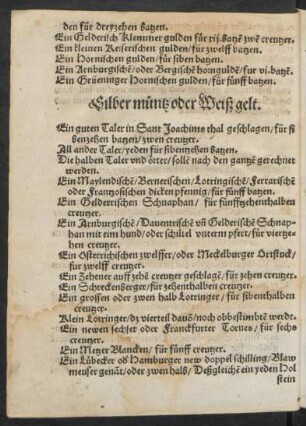 den für dreyzehen batzen.
Ein Gelderisch Klemmer gulden für xij. batzē zwē creutzer.
Ein kleinen Keiserischen gulden / für zwelff batzen.
Ein Hornischen gulden / für siben batzen.
Ein Arnburgischē / oder Bergischē horngulde / fur vj. batzē.
Ein Grüeninger Hornischen gulden / für fünff batzen.
Silber müntz oder Weiß gelt.
Ein guten Taler in Sant Joachims thal geschlagen / für sibenzehen batzen / zwen creutzer.
All ander Taler / yeden für sibentzehen batzen.
Die halben Taler vnd örter / sollē nach den gantzē gerechnet
werden.
Ein Maylendischē / Bernerischen / Lotringischē / Ferrarischē
oder Frantzösischen dicken pfennig / für fünff batzen.
Ein Gelderischen Schnaphan / für fünfftzehenthalben
creutzer.
Ein Arnburgischē / Dauentrischē vñ Gelderischē Schnaphan
mit ein hund / oder schiltel vnterm pfert / für viertzehen
creutzer.
Ein Osterrichischen zwelffer / oder Meckelburger Ortstuck /
fur zwelff creutzer.
Ein Zehener auff zehē creutzer geschlagē / für zehen creutzer.
Ein Schreckenberger / für zehenthalben creutzer.
Ein grossen oder zwen halb Lotringer / für sibenthalben
creutzer.
Klein Lotringer / dz vierteil dauō / noch obbestimbtē werdt.
Ein newen sechser oder Franckfurter Tornes / für sechs
creutzer.
Ein Metzer Blancken / für fünff creutzer.
Ein Lübecker od' Hamburger new doppel schilling / Blaw
meuser genāt / oder zwen halb / Deßgleichē ein yeden Hol
stein